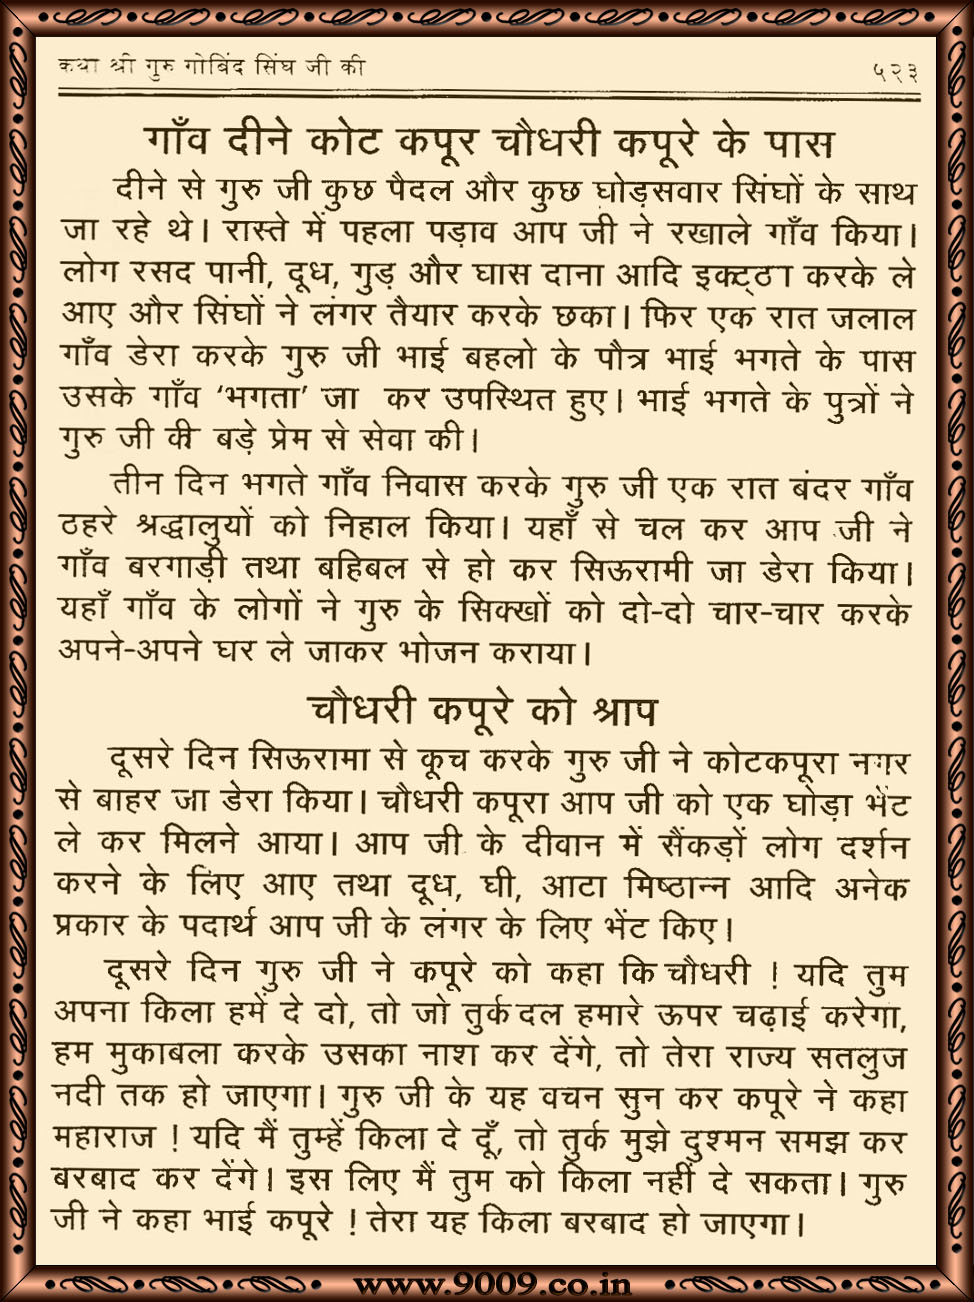 कथा श्री गुरु गोबिंद सिंघ जी की ५२३
गाँव दीने कोट कपूर चौधरी कपूरे के पास
दीने से गुरु जी कुछ पैदल और कुछ घोड़सवार सिंघों के साथ
जा रहे थे। रास्ते में पहला पड़ाव आप जी ने रखाले गाँव किया।
लोग रसद पानी, दूध, गुड़ और घास दाना आदि इक्ट्ठा करके ले
आए और सिंघों ने लंगर तैयार करके छका। फिर एक रात जलाल
गाँव डेरा करके गुरु जी भाई बहलो के पौत्र भाई भगते के पास
उसके गाँव ‘भगता’ जा कर उपस्थित हुए। भाई भगते के पुत्रों ने
गुरु जी की बड़े प्रेम से सेवा की।
तीन दिन भगते गाँव निवास करके गुरु जी एक रात बंदर गाँव
ठहरे श्रद्धालुयों को निहाल किया। यहाँ से चल कर आप जी ने
गाँव बरगाड़ी तथा बहिबल से हो कर सिऊरामी जा डेरा किया।
यहाँ गाँव के लोगों ने गुरु के सिक्खों को दो-दो चार-चार करके
अपने-अपने घर ले जाकर भोजन कराया।
चौधरी कपूरे को श्राप
दूसरे दिन सिऊरामा से कूच करके गुरु जी ने कोटकपूरा नगर
से बाहर जा डेरा किया। चौधरी कपूरा आप जी को एक घोड़ा भेंट
ले कर मिलने आया। आप जी के दीवान में सैंकड़ों लोग दर्शन
करने के लिए आए तथा दूध, घी, आटा मिष्ठान्न आदि अनेक
प्रकार के पदार्थ आप जी के लंगर के लिए भेंट किए।
दूसरे दिन गुरु जी ने कपूरे को कहा कि चौधरी ! यदि तुम
अपना किला हमें दे दो, तो जो तुर्क दल हमारे ऊपर चढ़ाई करेगा,
हम मुकाबला करके उसका नाश कर देंगे, तो तेरा राज्य सतलुज
नदी तक हो जाएगा। गुरु जी के यह वचन सुन कर कपूरे ने कहा
महाराज ! यदि मैं तुम्हें किला दे दूँ, तो तुर्क मुझे दुश्मन समझ कर
बरबाद कर देंगे। इस लिए मैं तुम को किला नहीं दे सकता। गुरु
जी ने कहा भाई कपूरे ! तेरा यह किला बरबाद हो जाएगा।
www.9009.co.in